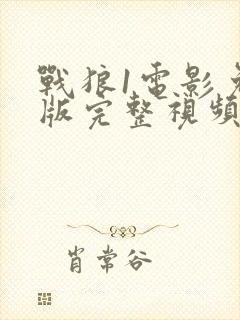 戰狼1電影免
版完整視頻
肖常谷